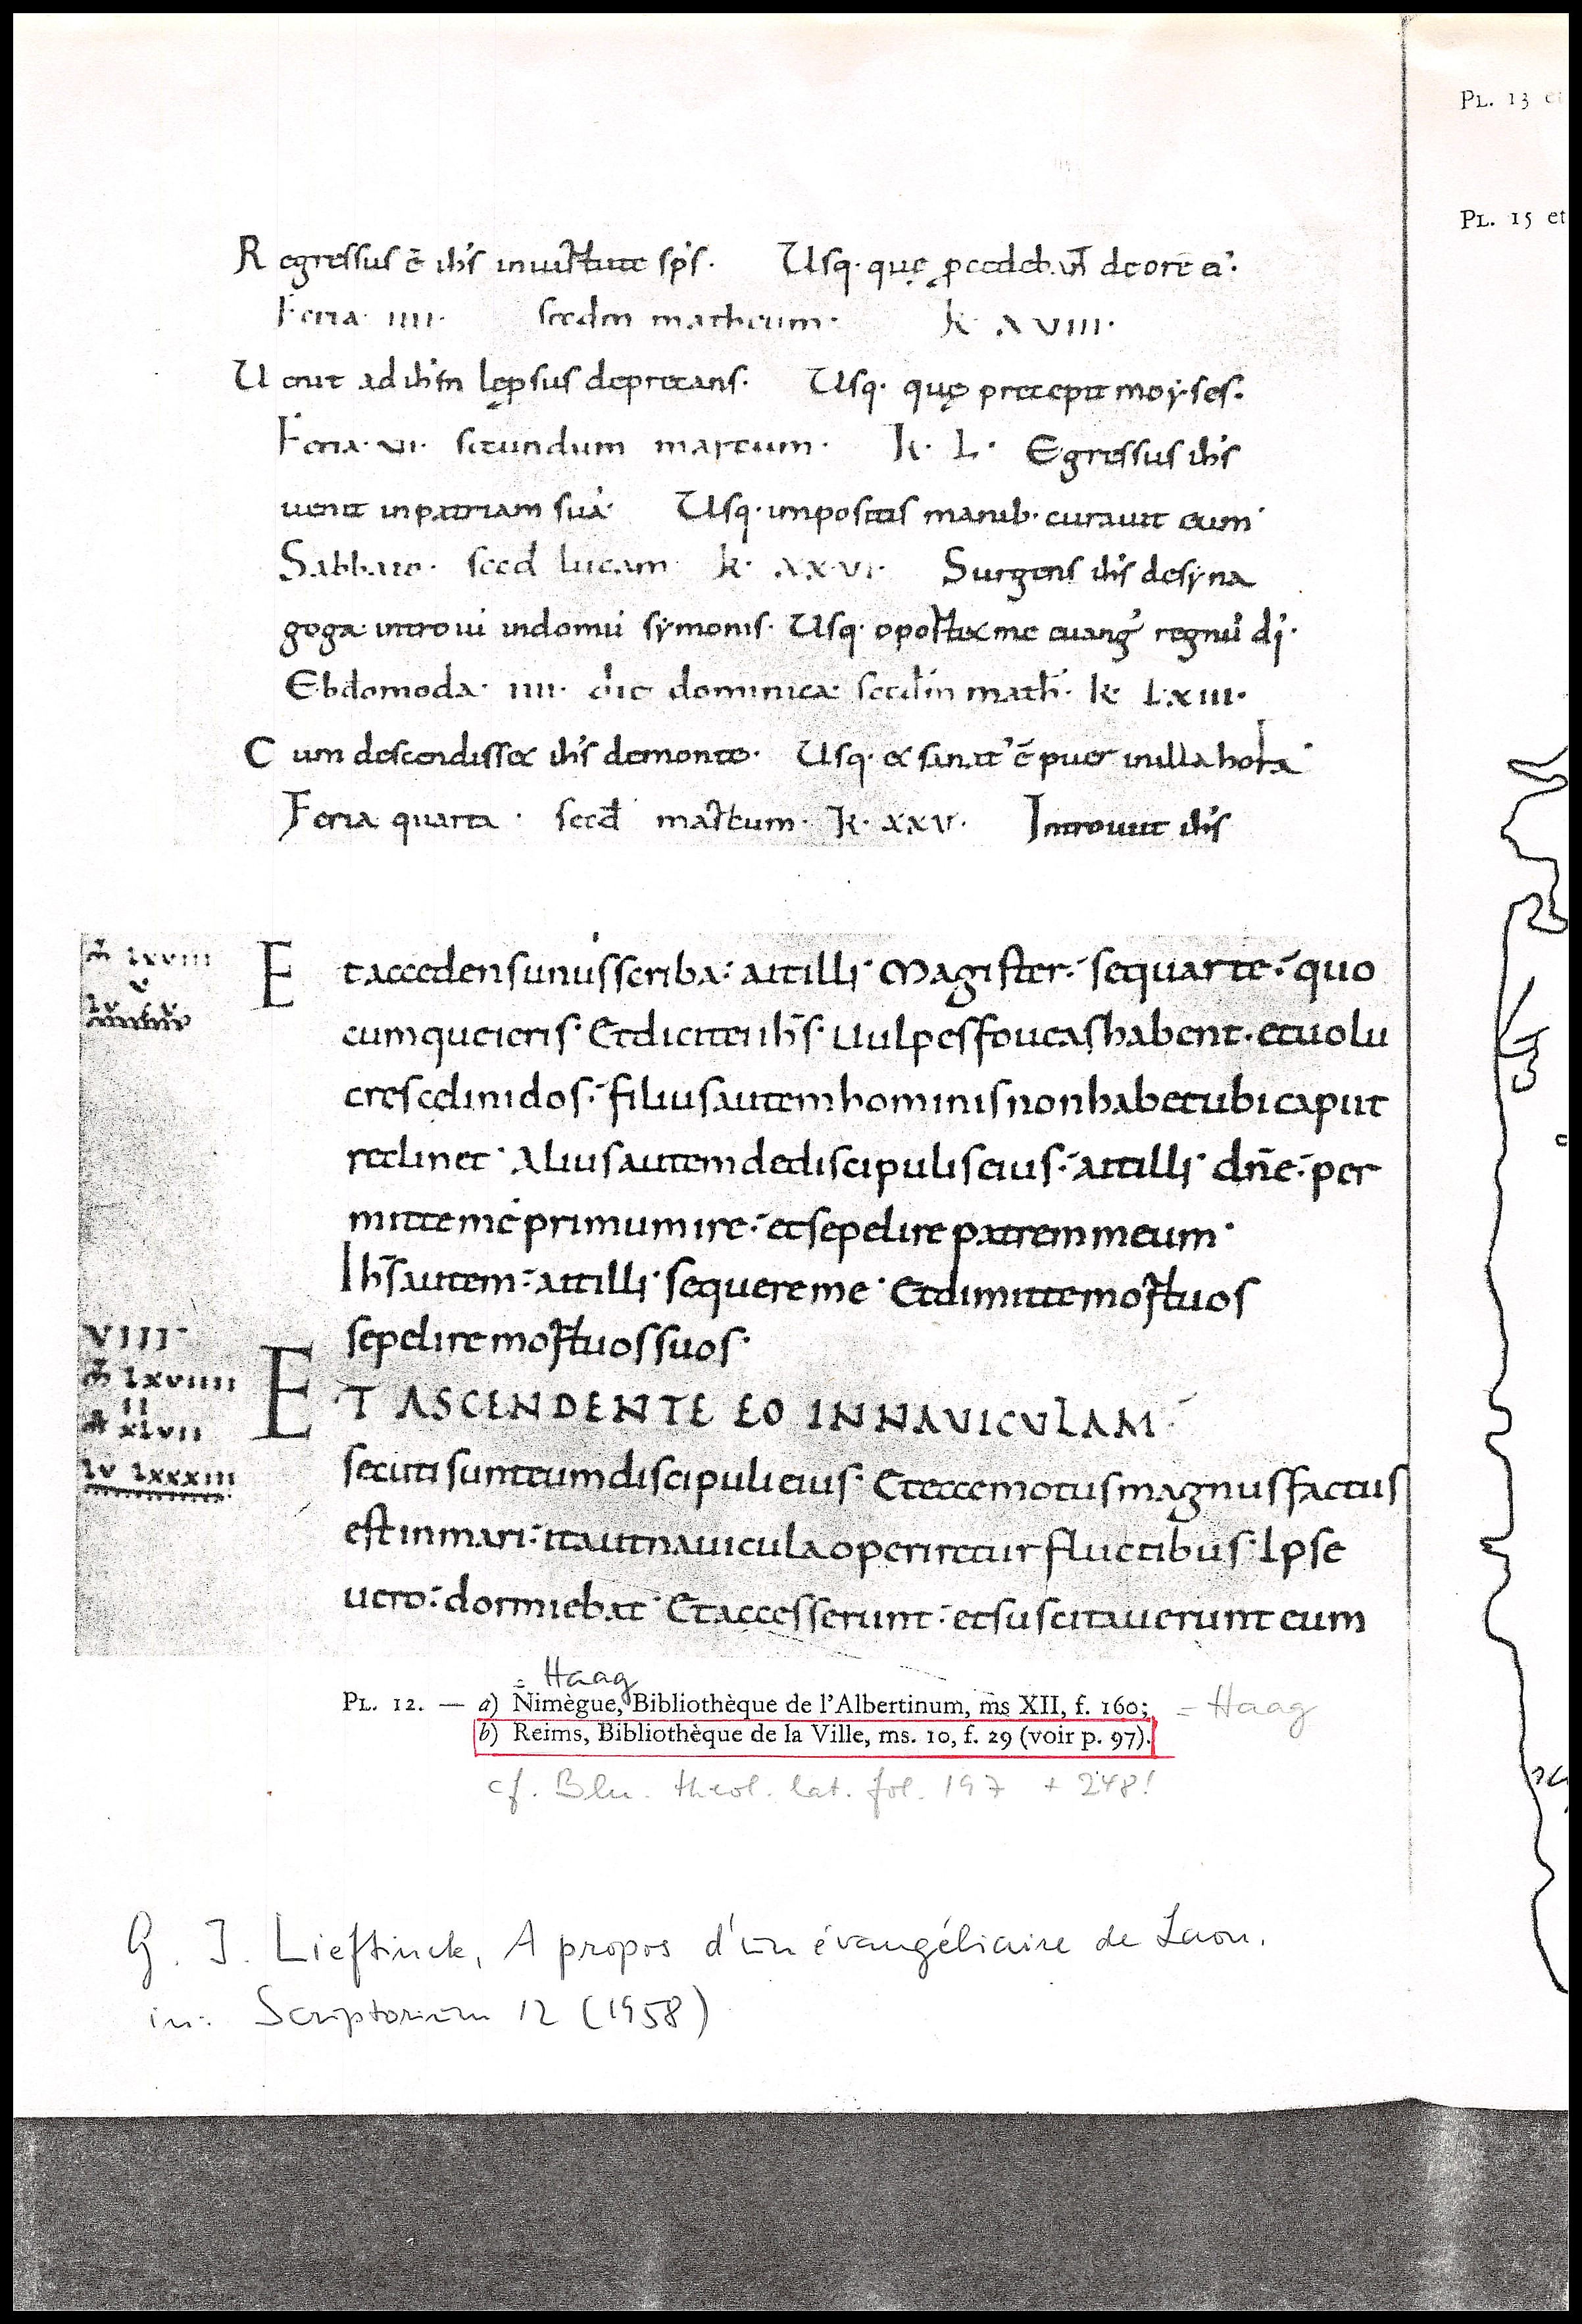 PL. 13 et
PL. 15 et
Regressus ē ih̄s in uirtute sp̄s. Usq. quę p̄cedeb.ūt de ore ei'.
Feria. IIII. secdm matheum. K. XVIII.
Uenit ad ih̄m lęprosus deprecans. Usq. quę precepit moẏses.
Feria. VI. secundum marcum. K. L. Egressus ih̄s
uenit in patriam suā. Usq. impositis manib. curauit eum.
Sabbato. secd lucam. K. XXVI. Surgens ih̄s de syna
goga introiui in domū sẏmonis. Usq. oportet me euang̃ regnū dī.
Ebdomoda. IIII. die dominica secdm math. K. LXIII.
Cum descendisset ih̄s de monte. Usq. et sanat' ē puer in illa hora.
Feria quarta. secd marcum. K. XXV. Introiuit ih̄s
m̄ LXVIII
V
lv
Et accedens unus scriba: ait illi. Magister: sequar te: quo
cumque ieris. Et dicit ei ih̄s. Uulpes foueas habent. et uolu
cres celi nidos: filius autem hominis non habet ubi caput
reclinet. Alius autem de discipulis eius: ait illi. dn̄e: per
mitte me primum ire: et sepelire patrem meum.
Ih̄s autem: ait illi. sequere me. Et dimitte mortuos
sepelire mortuos suos.
VIII
m̄ LXVIIII
II
XLVII
lv LXXXIII
ET ASCENDENTE EO IN NAVICULAM:
secuti sunt eum discipuli eius. Et ecce motus magnus factus
est in mari: ita ut nauicula operiretur fluctibus. Ipse
uero: dormiebat. Et accesserunt: et suscitauerunt eum
= Haag
PL. 12. — a) Nimègue, Bibliothèque de l'Albertinum, ms XII, f. 160; = Haag
b) Reims, Bibliothèque de la Ville, ms. 10, f. 29 (voir p. 97).
cf. Bln. theol. lat. fol. 197 + 248!
G. I. Lieftinck, A propos d'un évangéliaire de Laon.
in: Scriptorium 12 (1958)